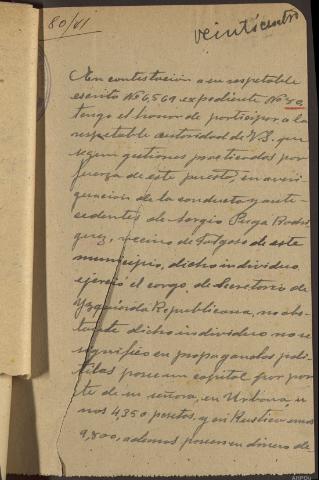 80/41
veinticuatro
En contestación a su respetable
escrito Nº 6,569 expediente Nº
tengo el honor de participar a la
respetable autoridad de V.S. que
segun gestiones practicadas por
fuerza de este puesto, en averi-
guación de la conducta y ante-
sedentes de Sergio Puga Rodri
guez, vecino de Folgoso de este
municipio, dicho individuo
ejerció el cargo de Secretario de
Yzquierda Republicana, no obs-
tante dicho individuo no se
significó en propagandas polí-
ticas posee un capital por par-
te de su señora, en Urbana, u
nos 4,350 pesetas, y en Rustica unos
9,800, ademas poseen en dinero de